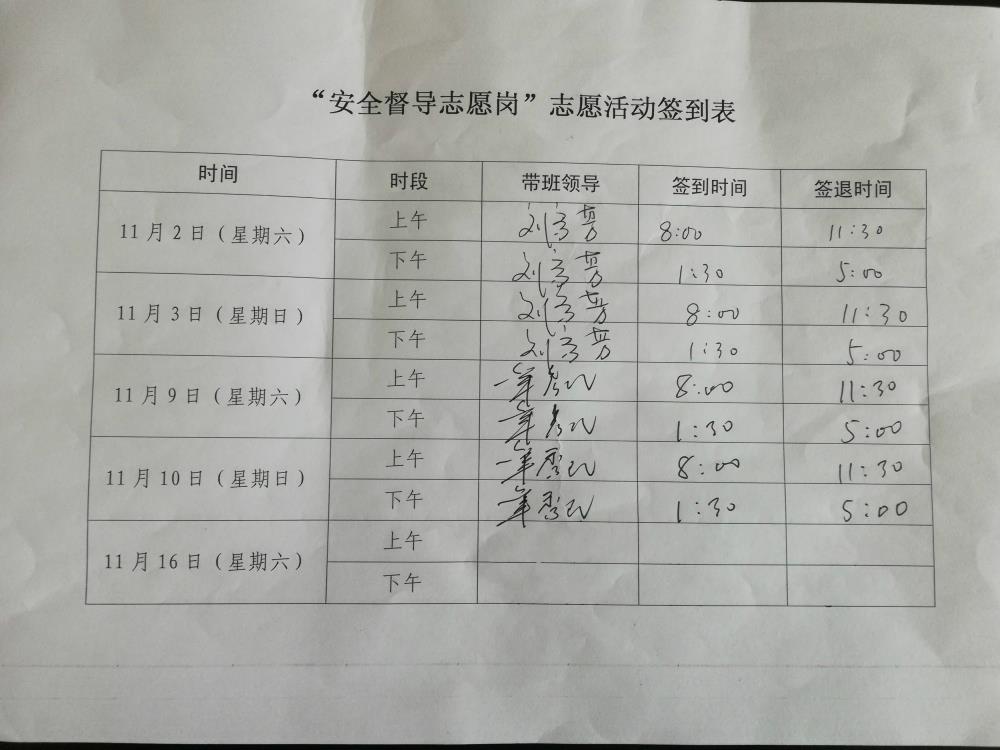 “安全督导志愿岗”志愿活动签到表
时间 时段 带班领导 签到时间 签退时间
11月2日（星期六） 上午 8:00 11:30
下午 1:30 5:00
11月3日（星期日） 上午 8:00 11:30
下午 1:30 5:00
11月9日（星期六） 上午 8:00 11:30
下午 1:30 5:00
11月10日（星期日） 上午 8:00 11:30
下午 1:30 5:00
11月16日（星期六） 上午
下午